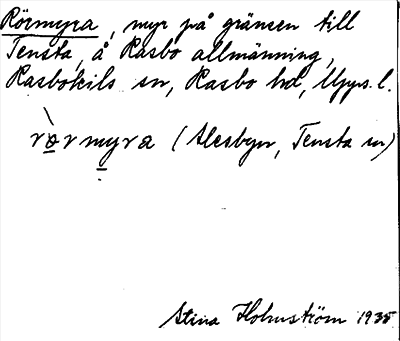 Rörmyra, myr på gränsen till
Tensta, å Rasbo allmänning,
Rasbokils sn, Rasbo hd, Upps. l.
rø̀rmyra (Alesbyn, Tensta sn)
Stina Holmström 1935